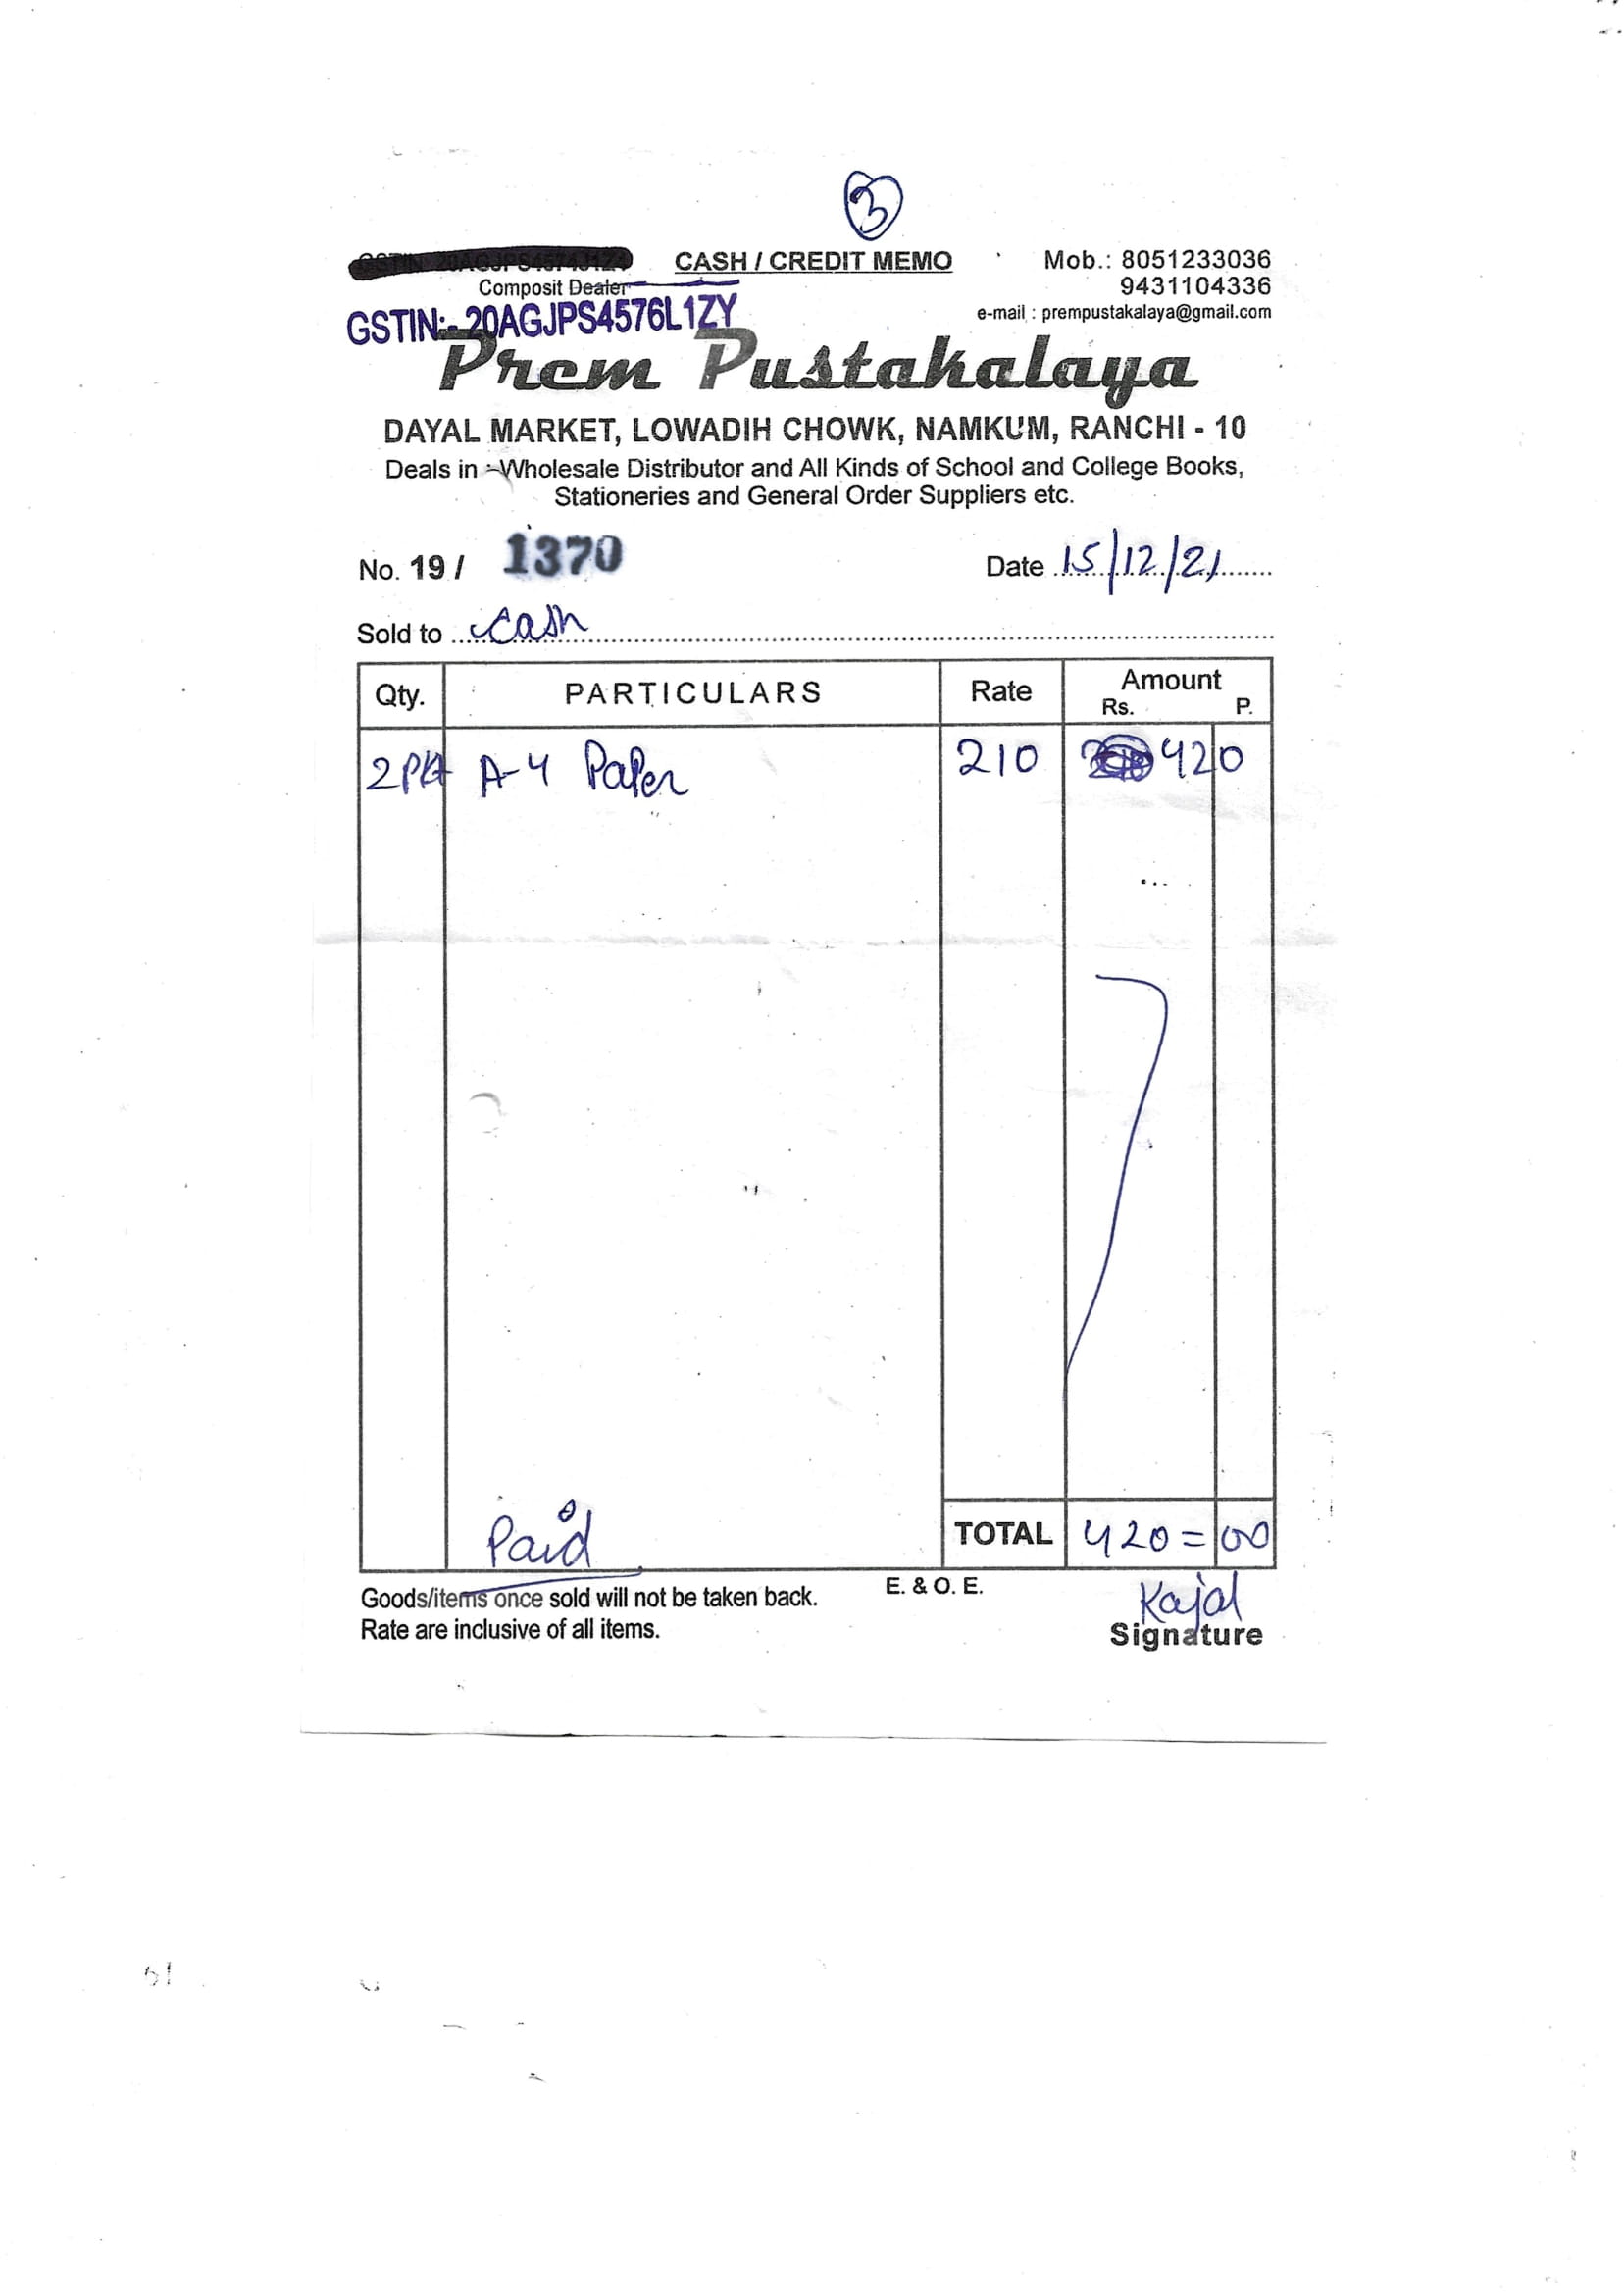 3
CASH / CREDIT MEMO
Mob.: 8051233036
9431104336
Composit Dealer
e-mail : prempustakalaya@gmail.com
GSTIN:- 20AGJPS4576L1ZY
Prem Pustakalaya
DAYAL MARKET, LOWADIH CHOWK, NAMKUM, RANCHI - 10
Deals in :-Wholesale Distributor and All Kinds of School and College Books,
Stationeries and General Order Suppliers etc.
No. 19 / 1370 Date 15/12/21
Sold to cash
Qty. PARTICULARS Rate Amount
Rs. P.
2 Pkt A-4 Paper 210 420
Paid
TOTAL 420=00
Goods/items once sold will not be taken back. E. & O. E.
Kajal
Rate are inclusive of all items. Signature